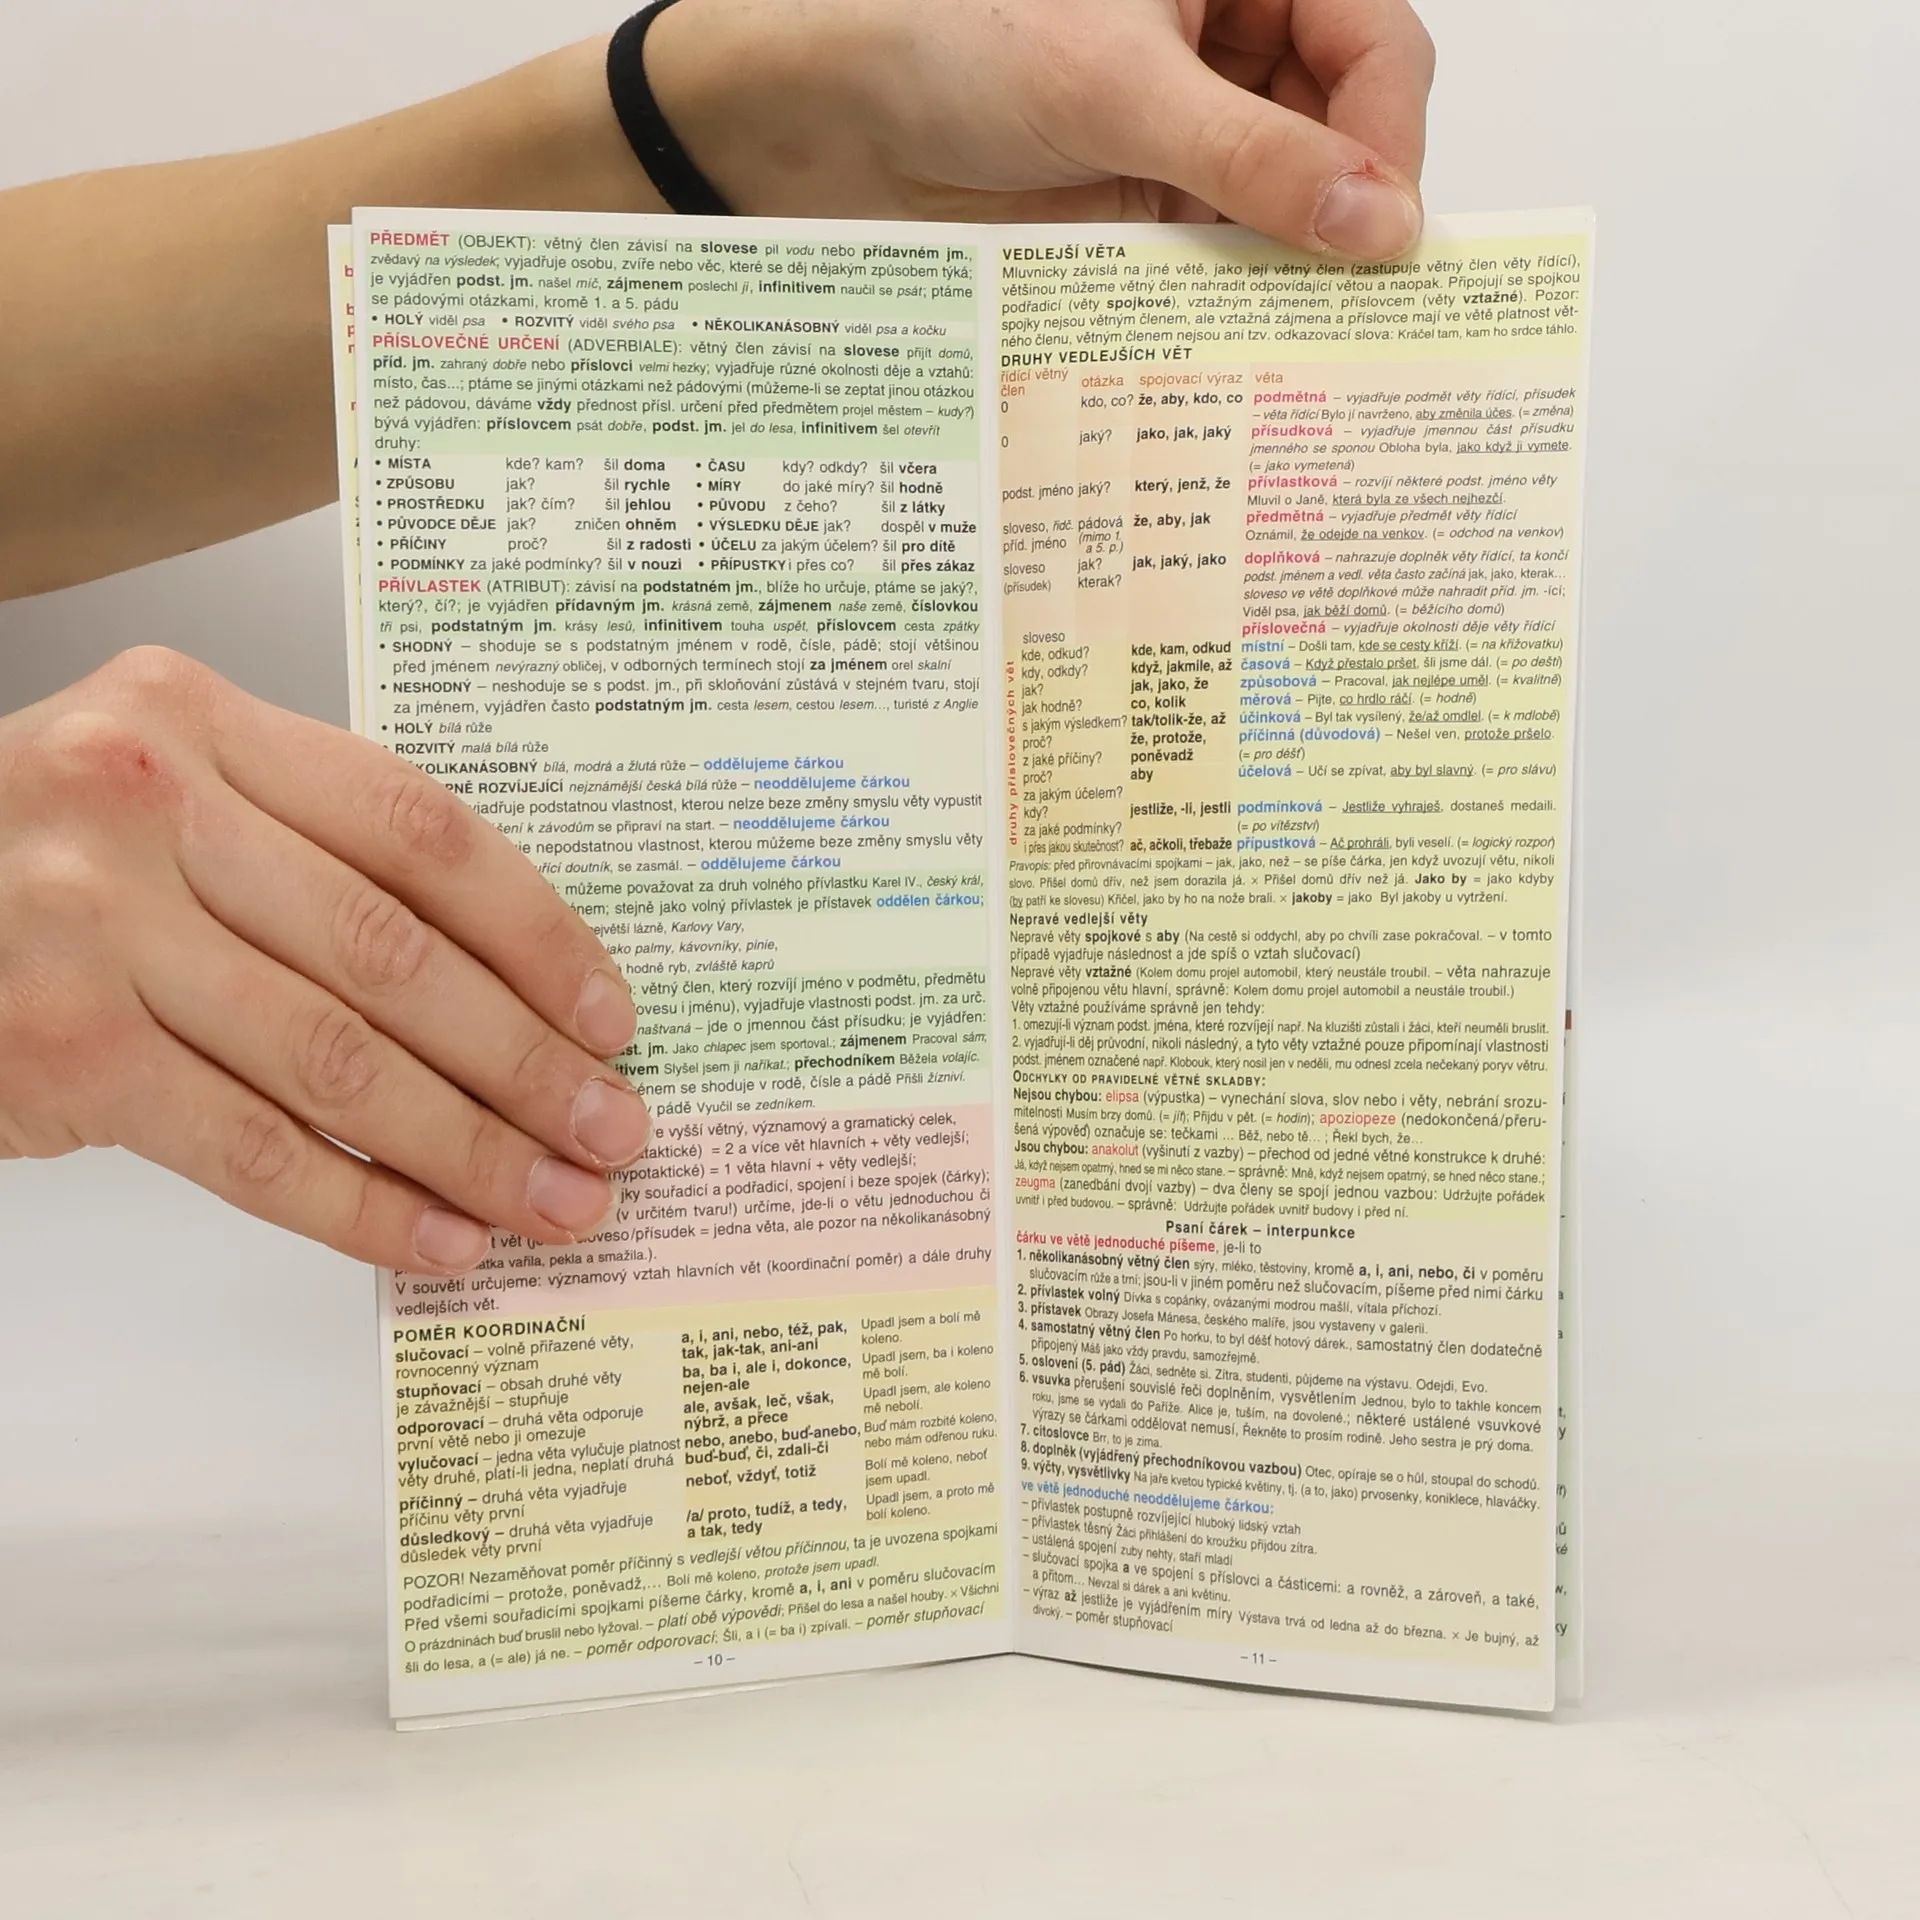 PŘEDMĚT (OBJEKT): větný člen závisí na slovese pil vodu nebo přídavném jm.,
zvědavý na výsledek; vyjadřuje osobu, zvíře nebo věc, které se děj nějakým způsobem týká;
je vyjádřen podst. jm. našel míč, zájmenem poslechl ji, infinitivem naučil se psát; ptáme
se pádovými otázkami, kromě 1. a 5. pádu
• HOLÝ viděl psa • ROZVITÝ viděl svého psa • NĚKOLIKANÁSOBNÝ viděl psa a kočku
PŘÍSLOVEČNÉ URČENÍ (ADVERBIALE): větný člen závisí na slovese přijít domů,
příd. jm. zahraný dobře nebo příslovci velmi hezky; vyjadřuje různé okolnosti děje a vztahů:
místo, čas...; ptáme se jinými otázkami než pádovými (můžeme-li se zeptat jinou otázkou
než pádovou, dáváme vždy přednost přísl. určení před předmětem projel městem – kudy?)
bývá vyjádřen: příslovcem psát dobře, podst. jm. jel do lesa, infinitivem šel otevřít
druhy:
• MÍSTA kde? kam? šil doma • ČASU kdy? odkdy? šil včera
• ZPŮSOBU jak? šil rychle • MÍRY do jaké míry? šil hodně
• PROSTŘEDKU jak? čím? šil jehlou • PŮVODU z čeho? šil z látky
• PŮVODCE DĚJE jak? zničen ohněm • VÝSLEDKU DĚJE jak? dospěl v muže
• PŘÍČINY proč? šil z radosti • ÚČELU za jakým účelem? šil pro dítě
• PODMÍNKY za jaké podmínky? šil v nouzi • PŘÍPUSTKY i přes co? šil přes zákaz
PŘÍVLASTEK (ATRIBUT): závisí na podstatném jm., blíže ho určuje, ptáme se jaký?,
který?, čí?; je vyjádřen přídavným jm. krásná země, zájmenem naše země, číslovkou
tři psi, podstatným jm. krásy lesů, infinitivem touha uspět, příslovcem cesta zpátky
• SHODNÝ – shoduje se s podstatným jménem v rodě, čísle, pádě; stojí většinou
před jménem nevýrazný obličej, v odborných termínech stojí za jménem orel skalní
• NESHODNÝ – neshoduje se s podst. jm., při skloňování zůstává v stejném tvaru, stojí
za jménem, vyjádřen často podstatným jm. cesta lesem, cestou lesem..., turisté z Anglie
• HOLÝ bílá růže
• ROZVITÝ malá bílá růže
KOLIKANÁSOBNÝ bílá, modrá a žlutá růže – oddělujeme čárkou
PNĚ ROZVÍJEJÍCÍ nejznámější česká bílá růže – neoddělujeme čárkou
yjadřuje podstatnou vlastnost, kterou nelze beze změny smyslu věty vypustit
šení k závodům se připraví na start. – neoddělujeme čárkou
je nepodstatnou vlastnost, kterou můžeme beze změny smyslu věty
uřící doutník, se zasmál. – oddělujeme čárkou
): můžeme považovat za druh volného přívlastku Karel IV., český král,
énem; stejně jako volný přívlastek je přístavek oddělen čárkou;
největší lázně, Karlovy Vary,
jako palmy, kávovníky, pinie,
hodně ryb, zvláště kaprů
): větný člen, který rozvíjí jméno v podmětu, předmětu
ovesu i jménu), vyjadřuje vlastnosti podst. jm. za urč.
naštvaná – jde o jmennou část přísudku; je vyjádřen:
st. jm. Jako chlapec jsem sportoval.; zájmenem Pracoval sám,
itivem Slyšel jsem ji naříkat.; přechodníkem Běžela volajíc.
énem se shoduje v rodě, čísle a pádě Přišli žízniví.
v pádě Vyučil se zedníkem.
e vyšší větný, významový a gramatický celek,
taktické) = 2 a více vět hlavních + věty vedlejší;
hypotaktické) = 1 věta hlavní + věty vedlejší;
jky souřadicí a podřadicí, spojení i beze spojek (čárky);
(v určitém tvaru!) určíme, jde-li o větu jednoduchou či
t vět sloveso/přísudek = jedna věta, ale pozor na několikanásobný
átka vařila, pekla a smažila.).
V souvětí určujeme: významový vztah hlavních vět (koordinační poměr) a dále druhy
vedlejších vět.
POMĚR KOORDINAČNÍ
slučovací – volně přiřazené věty, rovnocenný význam a, i, ani, nebo, též, pak, tak, jak-tak, ani-ani Upadl jsem a bolí mě koleno.
stupňovací – obsah druhé věty je závažnější – stupňuje ba, ba i, ale i, dokonce, nejen-ale Upadl jsem, ba i koleno mě bolí.
odporovací – druhá věta odporuje první větě nebo ji omezuje ale, avšak, leč, však, nýbrž, a přece Upadl jsem, ale koleno mě nebolí.
vylučovací – jedna věta vylučuje platnost věty druhé, platí-li jedna, neplatí druhá nebo, anebo, buď-anebo, buď-buď, či, zdali-či Buď mám rozbité koleno, nebo mám odřenou ruku.
příčinný – druhá věta vyjadřuje příčinu věty první neboť, vždyť, totiž Bolí mě koleno, neboť jsem upadl.
důsledkový – druhá věta vyjadřuje důsledek věty první /a/ proto, tudíž, a tedy, a tak, tedy Upadl jsem, a proto mě bolí koleno.
POZOR! Nezaměňovat poměr příčinný s vedlejší větou příčinnou, ta je uvozena spojkami
podřadicími – protože, poněvadž,... Bolí mě koleno, protože jsem upadl.
Před všemi souřadicími spojkami píšeme čárky, kromě a, i, ani v poměru slučovacím
O prázdninách buď bruslil nebo lyžoval. – platí obě výpovědi; Přišel do lesa a našel houby. × Všichni
šli do lesa, a (= ale) já ne. – poměr odporovací; Šli, a i (= ba i) zpívali. – poměr stupňovací
– 10 –
VEDLEJŠÍ VĚTA
Mluvnicky závislá na jiné větě, jako její větný člen (zastupuje větný člen věty řídící),
většinou můžeme větný člen nahradit odpovídající větou a naopak. Připojují se spojkou
podřadicí (věty spojkové), vztažným zájmenem, příslovcem (věty vztažné). Pozor:
spojky nejsou větným členem, ale vztažná zájmena a příslovce mají ve větě platnost vět-
ného členu, větným členem nejsou ani tzv. odkazovací slova: Kráčel tam, kam ho srdce táhlo.
DRUHY VEDLEJŠÍCH VĚT
řídící větný člen otázka spojovací výraz věta
0 kdo, co? že, aby, kdo, co podmětná – vyjadřuje podmět věty řídící, přísudek
– věta řídící Bylo jí navrženo, aby změnila účes. (= změna)
0 jaký? jako, jak, jaký přísudková – vyjadřuje jmennou část přísudku
jmenného se sponou Obloha byla, jako když ji vymete.
(= jako vymetená)
podst. jméno jaký? který, jenž, že přívlastková – rozvíjí některé podst. jméno věty
Mluvil o Janě, která byla ze všech nejhezčí.
sloveso, řidč. příd. jméno pádová (mimo 1. a 5. p.) že, aby, jak předmětná – vyjadřuje předmět věty řídící
Oznámil, že odejde na venkov. (= odchod na venkov)
sloveso (přísudek) jak? kterak? jak, jaký, jako doplňková – nahrazuje doplněk věty řídící, ta končí
podst. jménem a vedl. věta často začíná jak, jako, kterak...
sloveso ve větě doplňkové může nahradit příd. jm. -ící;
Viděl psa, jak běží domů. (= běžícího domů)
sloveso příslovečná – vyjadřuje okolnosti děje věty řídící
druhy příslovečných vět
kde, odkud? kde, kam, odkud místní – Došli tam, kde se cesty kříží. (= na křižovatku)
kdy, odkdy? když, jakmile, až časová – Když přestalo pršet, šli jsme dál. (= po dešti)
jak? jak, jako, že způsobová – Pracoval, jak nejlépe uměl. (= kvalitně)
jak hodně? co, kolik měrová – Pijte, co hrdlo ráčí. (= hodně)
s jakým výsledkem? tak/tolik-že, až účinková – Byl tak vysílený, že/až omdlel. (= k mdlobě)
proč? z jaké příčiny? že, protože, poněvadž příčinná (důvodová) – Nešel ven, protože pršelo.
(= pro déšť)
proč? za jakým účelem? aby účelová – Učí se zpívat, aby byl slavný. (= pro slávu)
kdy? za jaké podmínky? jestliže, -li, jestli podmínková – Jestliže vyhraješ, dostaneš medaili.
(= po vítězství)
i přes jakou skutečnost? ač, ačkoli, třebaže přípustková – Ač prohráli, byli veselí. (= logický rozpor)
Pravopis: před přirovnávacími spojkami – jak, jako, než – se píše čárka, jen když uvozují větu, nikoli
slovo. Přišel domů dřív, než jsem dorazila já. × Přišel domů dřív než já. Jako by = jako kdyby
(by patří ke slovesu) Křičel, jako by ho na nože brali. × jakoby = jako Byl jakoby u vytržení.
Nepravé vedlejší věty
Nepravé věty spojkové s aby (Na cestě si oddychl, aby po chvíli zase pokračoval. – v tomto
případě vyjadřuje následnost a jde spíš o vztah slučovací)
Nepravé věty vztažné (Kolem domu projel automobil, který neustále troubil. – věta nahrazuje
volně připojenou větu hlavní, správně: Kolem domu projel automobil a neustále troubil.)
Věty vztažné používáme správně jen tehdy:
1. omezují-li význam podst. jména, které rozvíjejí např. Na kluzišti zůstali i žáci, kteří neuměli bruslit.
2. vyjadřují-li děj průvodní, nikoli následný, a tyto věty vztažné pouze připomínají vlastnosti
podst. jménem označené např. Klobouk, který nosil jen v neděli, mu odnesl zcela nečekaný poryv větru.
ODCHYLKY OD PRAVIDELNÉ VĚTNÉ SKLADBY:
Nejsou chybou: elipsa (výpustka) – vynechání slova, slov nebo i věty, nebrání srozu-
mitelnosti Musím brzy domů. (= jít); Přijdu v pět. (= hodin); apoziopeze (nedokončená/přeru-
šená výpověď) označuje se: tečkami ... Běž, nebo tě... ; Řekl bych, že...
Jsou chybou: anakolut (vyšinutí z vazby) – přechod od jedné větné konstrukce k druhé:
Já, když nejsem opatrný, hned se mi něco stane. – správně: Mně, když nejsem opatrný, se hned něco stane.;
zeugma (zanedbání dvojí vazby) – dva členy se spojí jednou vazbou: Udržujte pořádek
uvnitř i před budovou. – správně: Udržujte pořádek uvnitř budovy i před ní.
Psaní čárek – interpunkce
čárku ve větě jednoduché píšeme, je-li to
1. několikanásobný větný člen sýry, mléko, těstoviny, kromě a, i, ani, nebo, či v poměru
slučovacím růže a trní; jsou-li v jiném poměru než slučovacím, píšeme před nimi čárku
2. přívlastek volný Dívka s copánky, ovázanými modrou mašlí, vítala příchozí.
3. přístavek Obrazy Josefa Mánesa, českého malíře, jsou vystaveny v galerii.
4. samostatný větný člen Po horku, to byl déšť hotový dárek., samostatný člen dodatečně
připojený Máš jako vždy pravdu, samozřejmě.
5. oslovení (5. pád) Žáci, sedněte si. Zítra, studenti, půjdeme na výstavu. Odejdi, Evo.
6. vsuvka přerušení souvislé řeči doplněním, vysvětlením Jednou, bylo to takhle koncem
roku, jsme se vydali do Paříže. Alice je, tuším, na dovolené.; některé ustálené vsuvkové
výrazy se čárkami oddělovat nemusí, Řekněte to prosím rodině. Jeho sestra je prý doma.
7. citoslovce Brr, to je zima.
8. doplněk (vyjádřený přechodníkovou vazbou) Otec, opíraje se o hůl, stoupal do schodů.
9. výčty, vysvětlivky Na jaře kvetou typické květiny, tj. (a to, jako) prvosenky, koniklece, hlaváčky.
ve větě jednoduché neoddělujeme čárkou:
– přívlastek postupně rozvíjející hluboký lidský vztah
– přívlastek těsný Žáci přihlášení do kroužku přijdou zítra.
– ustálená spojení zuby nehty, staří mladí
– slučovací spojka a ve spojení s příslovci a částicemi: a rovněž, a zároveň, a také,
a přitom... Nevzal si dárek a ani květinu.
– výraz až jestliže je vyjádřením míry Výstava trvá od ledna až do března. × Je bujný, až
divoký. – poměr stupňovací
– 11 –